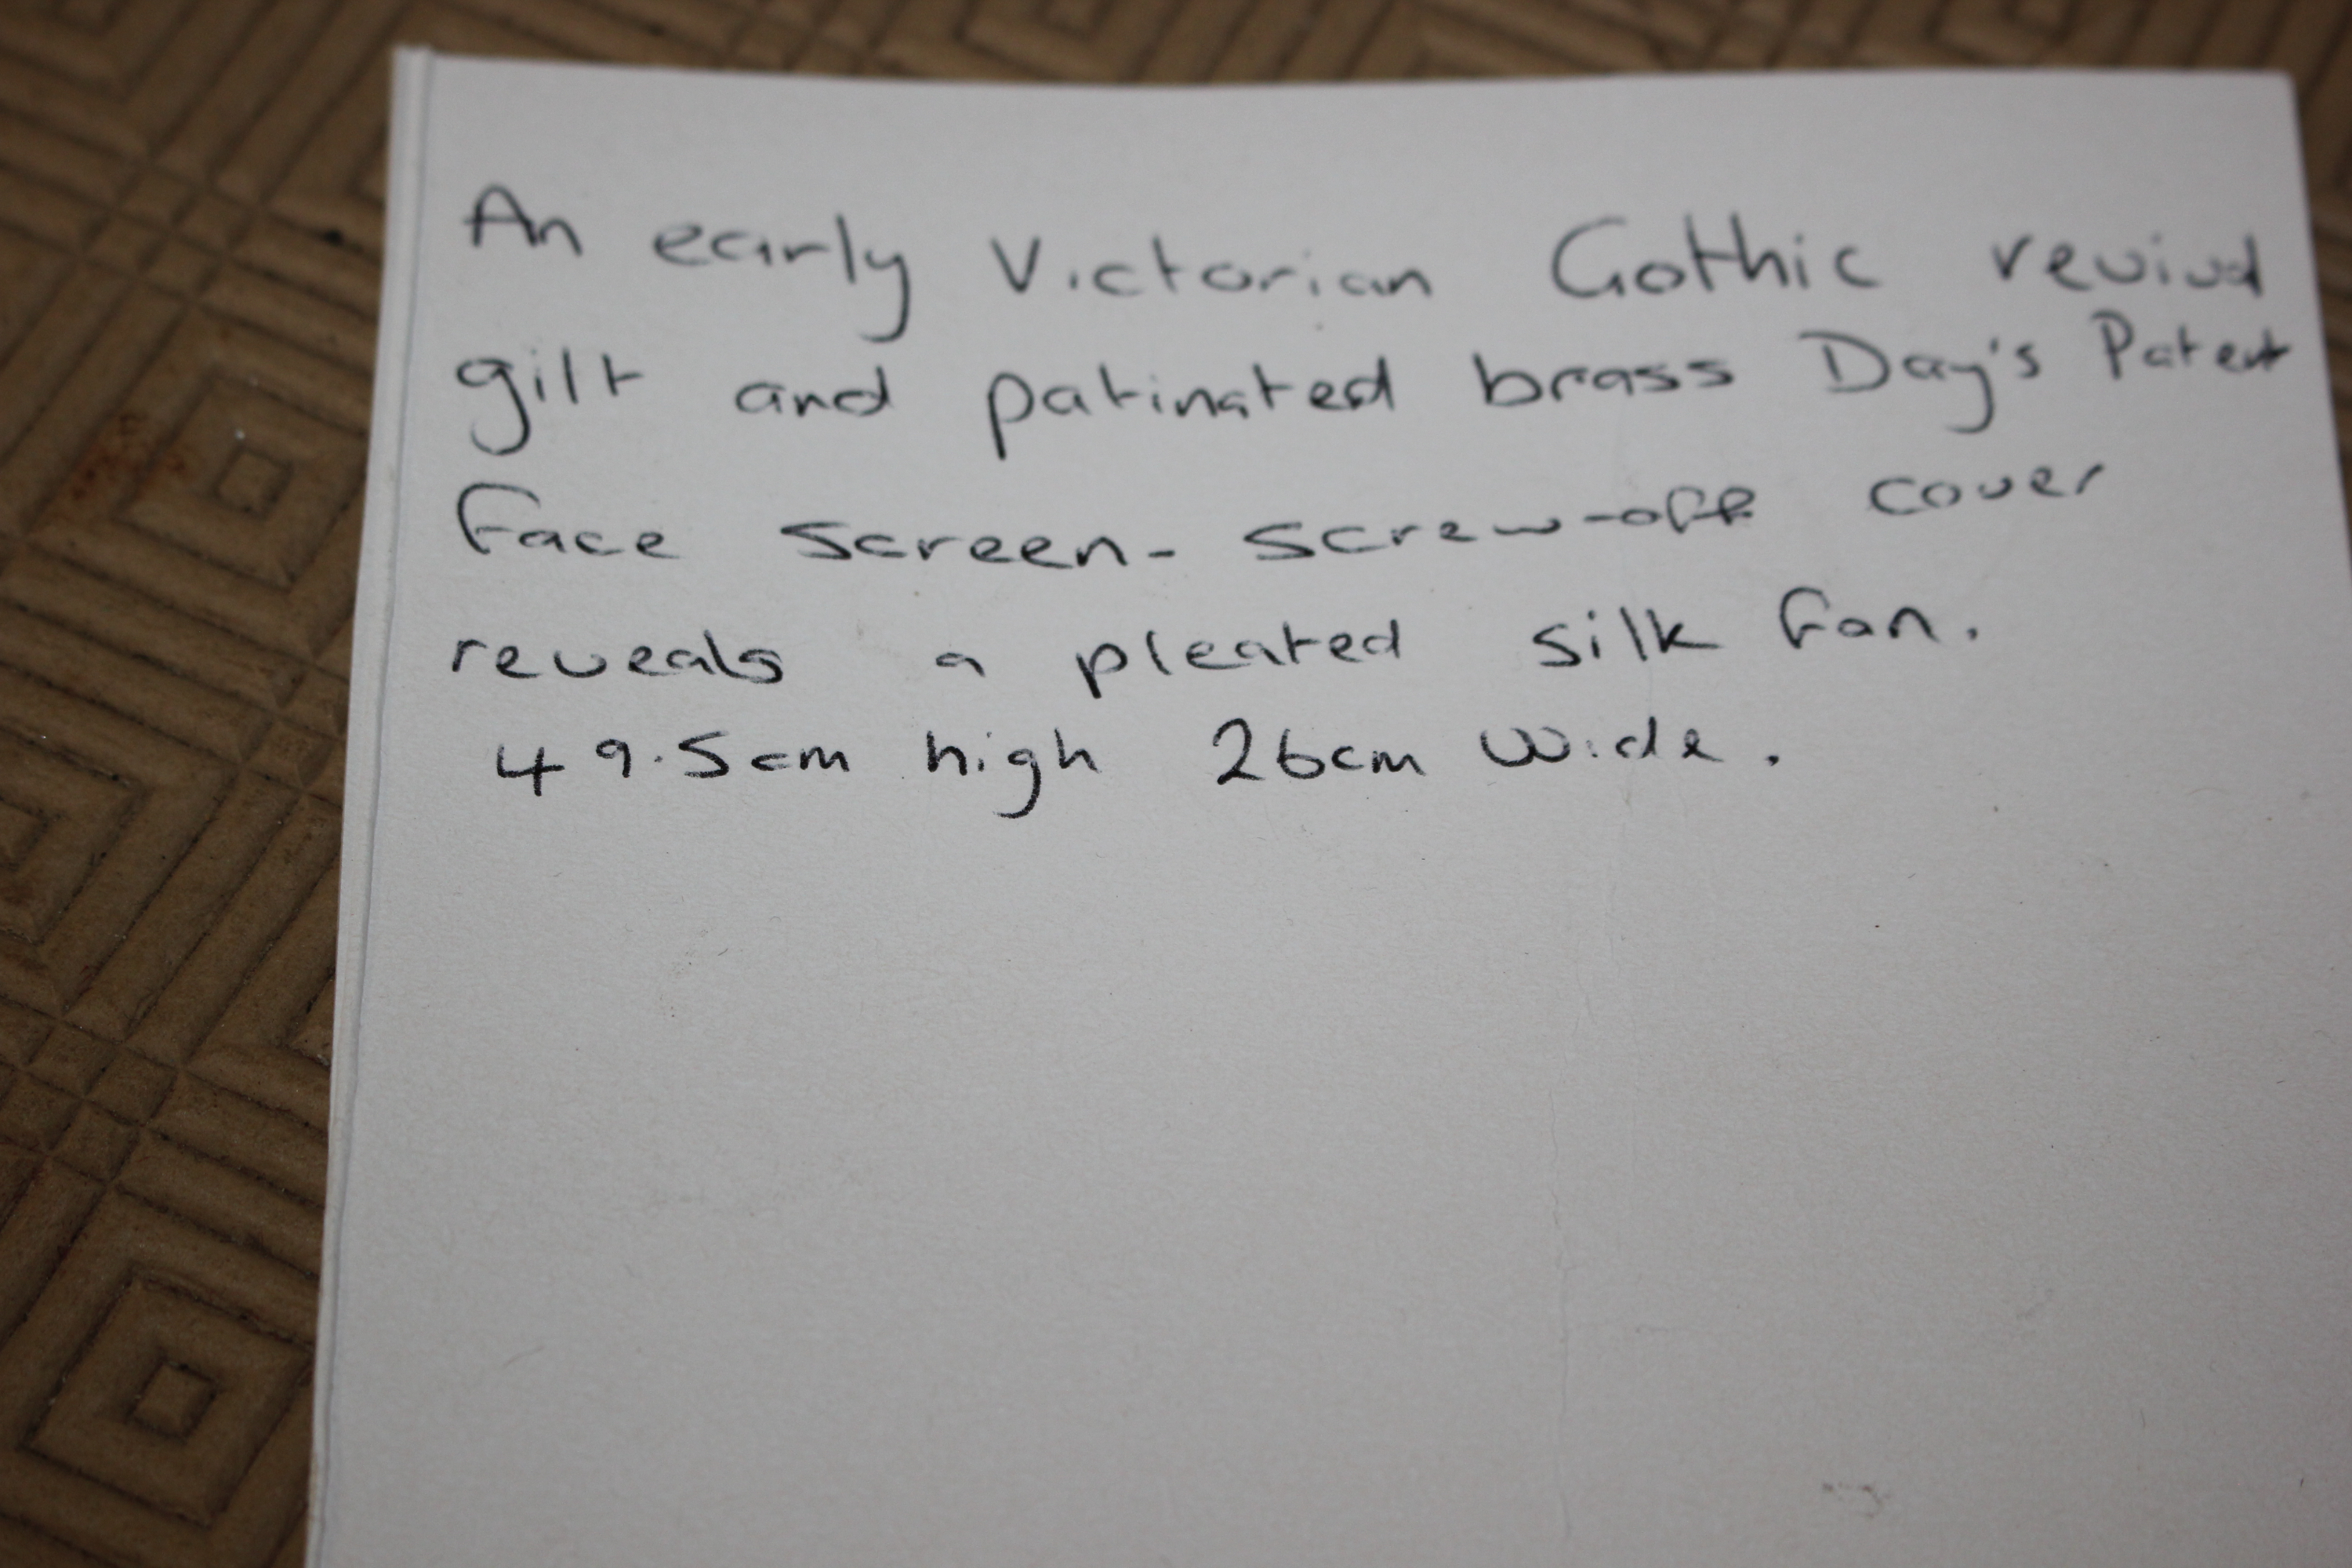 An early Victorian Gothic revival
gilt and patinated brass Day's Patent
Face screen- screw-off cover
reveals a pleated silk fan.
49.5cm high 26cm wide.